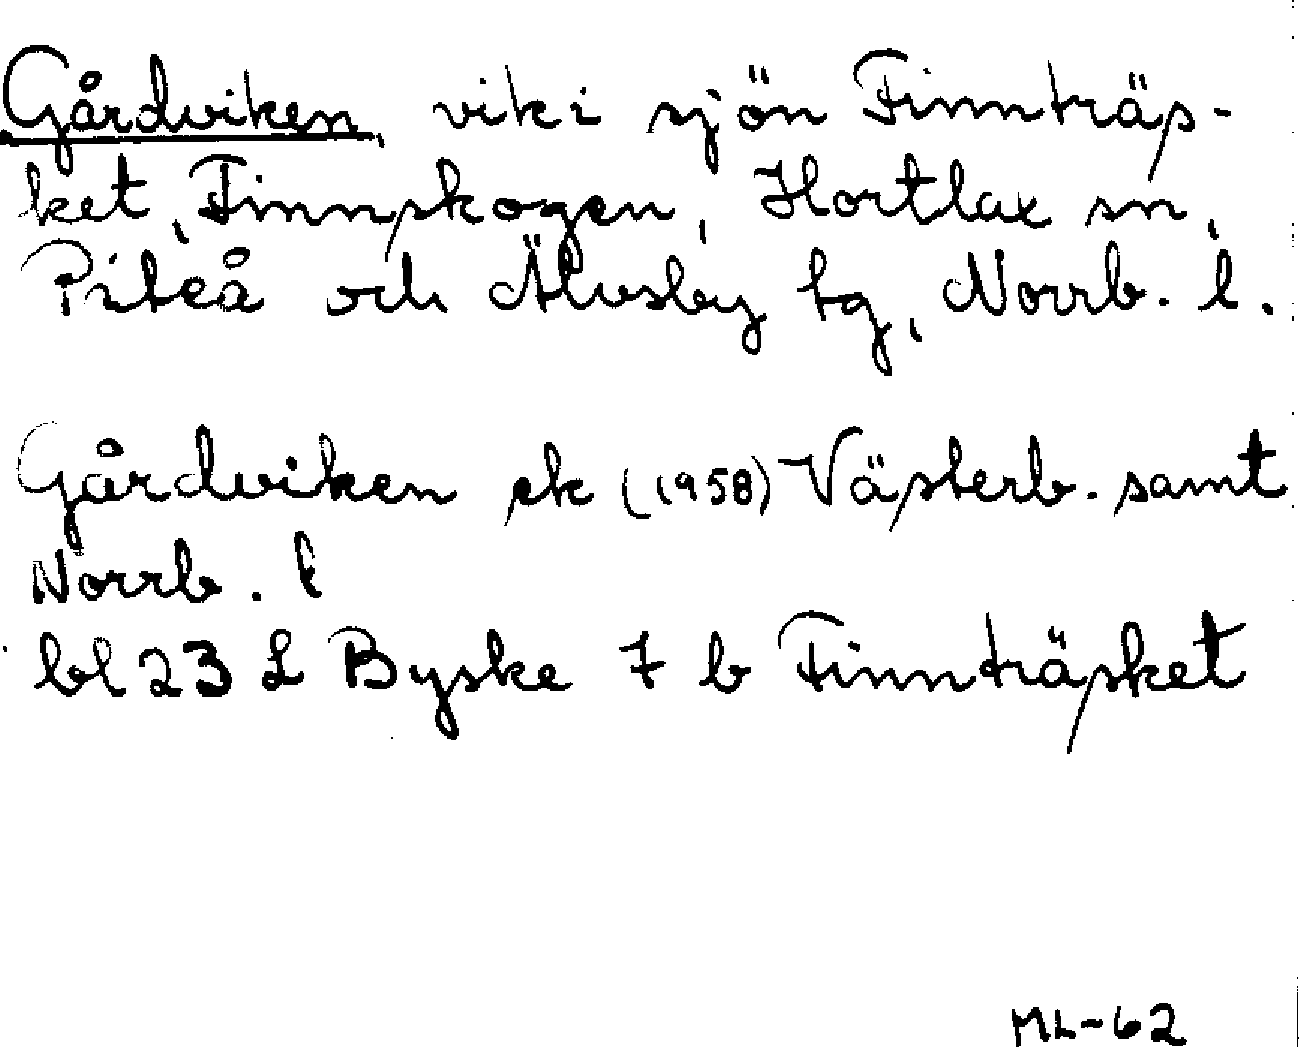 Gårdviken, vik i sjön Finnträs-
ket, Finnskogen, Hortlax sn,
Piteå och Älvsby tg, Norrb. l.
Gårdviken ek (1958) Västerb. samt
Norrb. l
bl 23 L Byske 7 b Finnträsket
ML-62